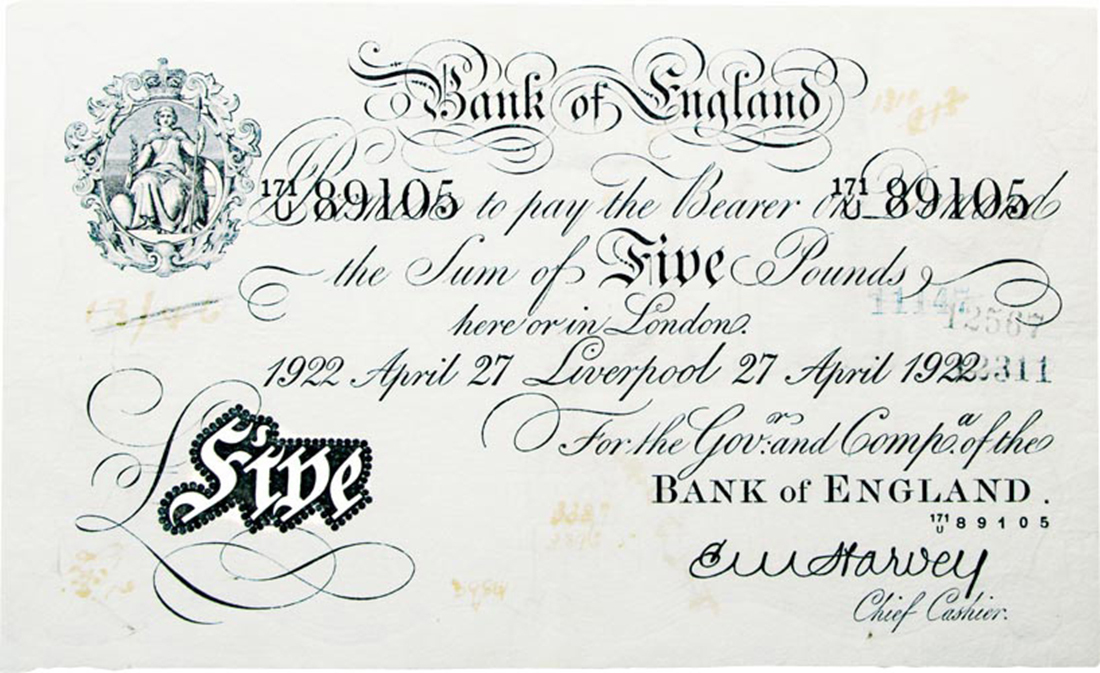 Bank of England
171/U 89105 to pay the Bearer on Demand 171/U 89105
the Sum of Five Pounds
here or in London.
12567
1922 April 27 Liverpool 27 April 1922
For the Gov.r and Comp.a of the
Five
BANK of ENGLAND.
171/U 89105
E M Harvey
Chief Cashier.